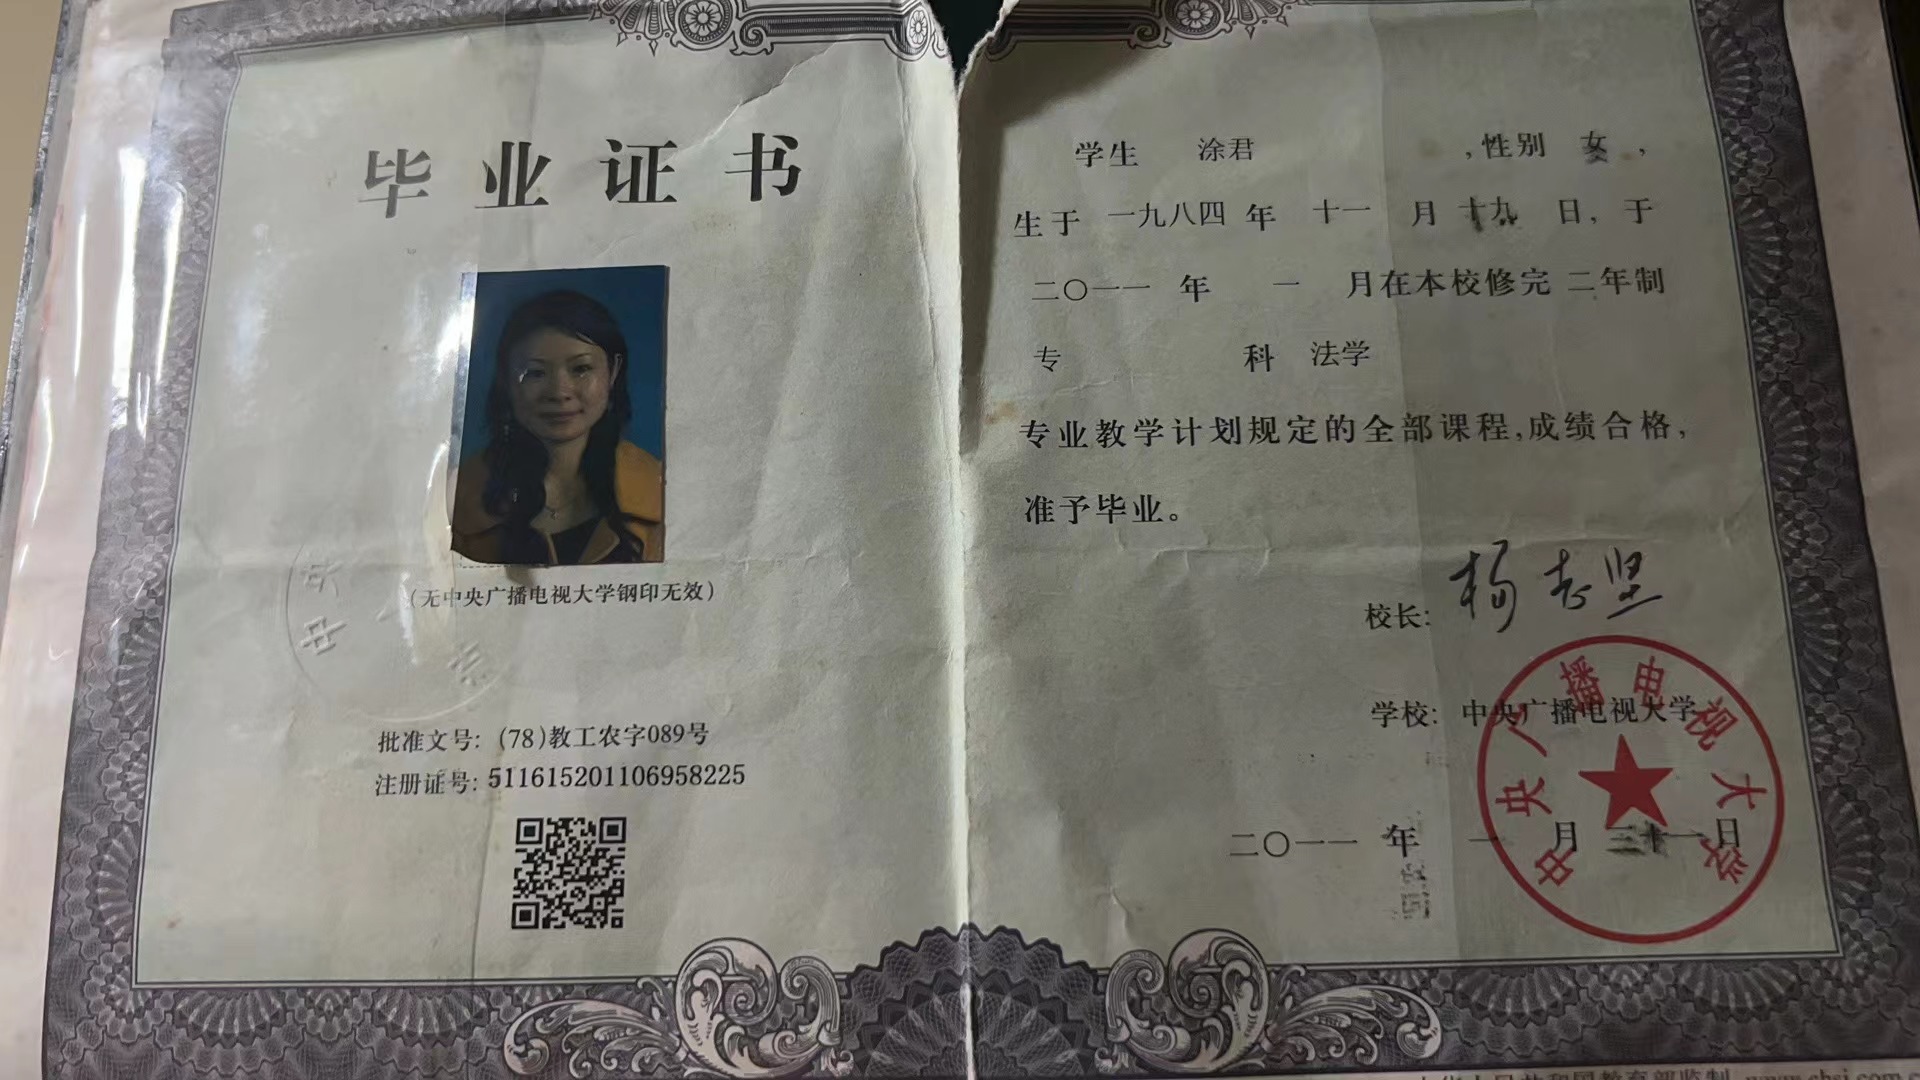 毕业证书
(无中央广播电视大学钢印无效)
中央
批准文号: (78)教工农字089号
注册证号: 511615201106958225
学生 涂君 ,性别 女 ,
生于 一九八四 年 十一 月 十九 日, 于
二〇一一 年 一 月在本校修完 二年制
专 科 法学
专业教学计划规定的全部课程,成绩合格,
准予毕业。
校长: 杨志坚
学校: 中央广播电视大学
中央广播电视大学
二〇一一 年 一 月 三十一日